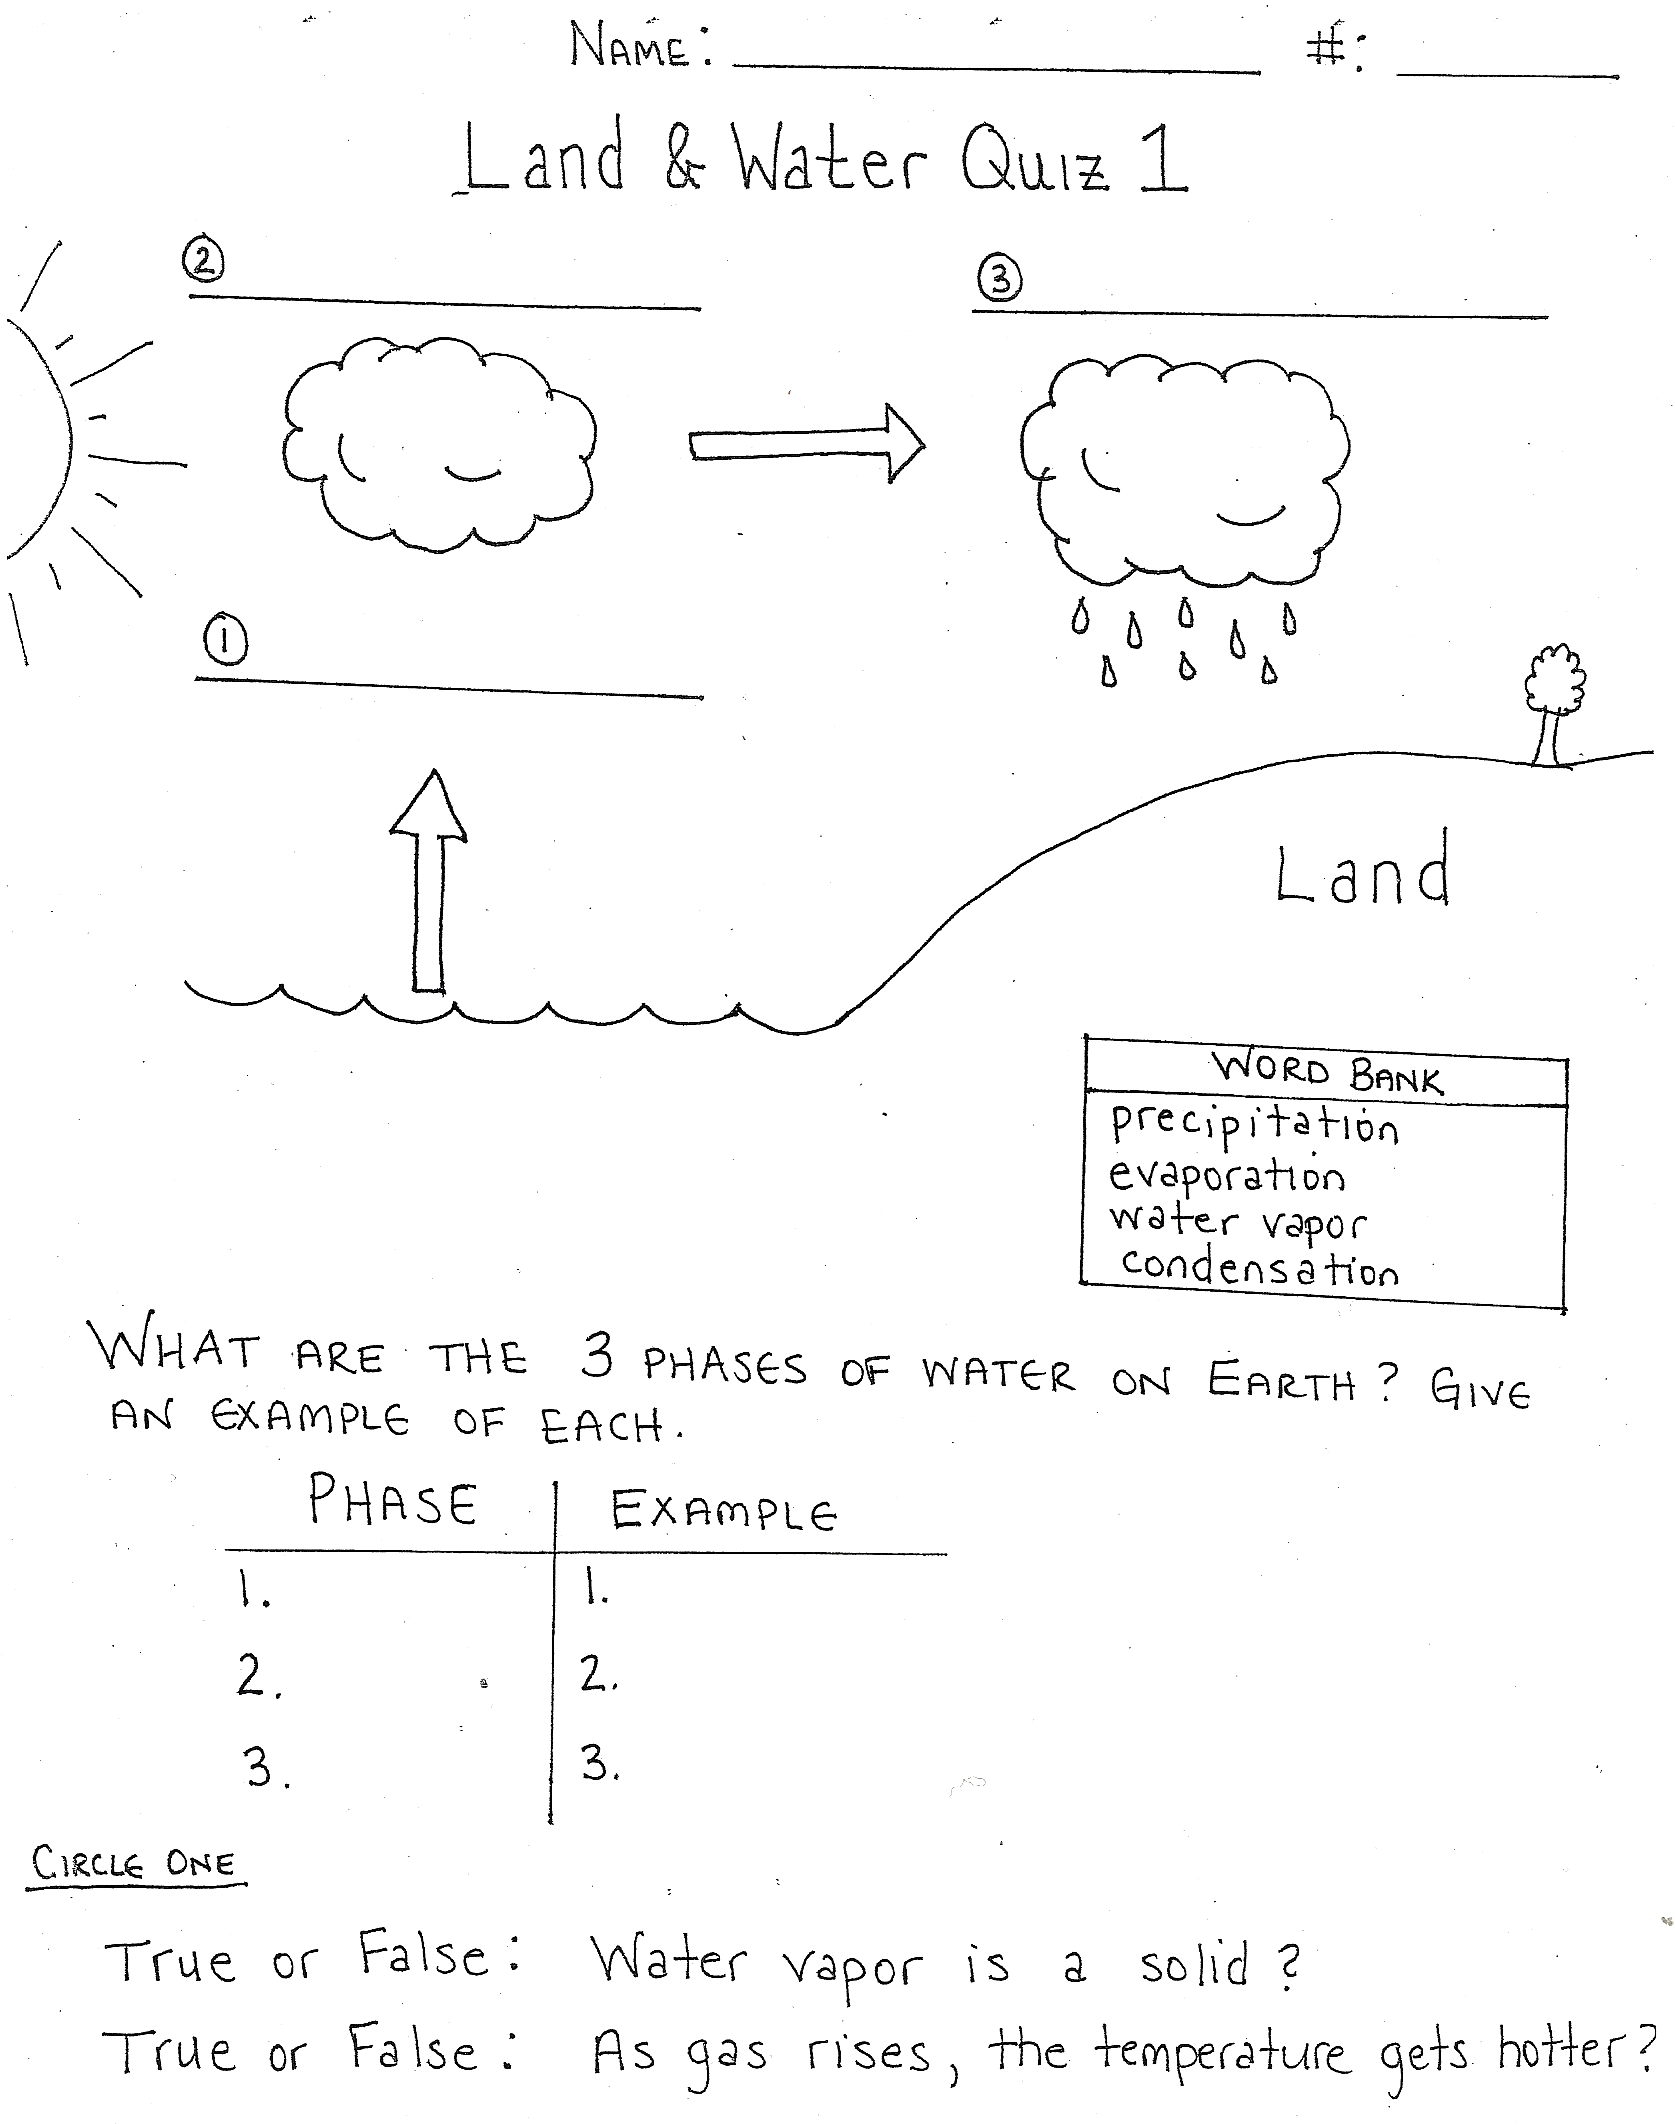 NAME: #:
Land & Water Quiz 1
②
③
①
Land
WORD BANK
precipitation
evaporation
water vapor
condensation
WHAT ARE THE 3 PHASES OF WATER ON EARTH? GIVE
AN EXAMPLE OF EACH.
PHASE EXAMPLE
1. 1.
2. 2.
3. 3.
CIRCLE ONE
True or False: Water vapor is a solid?
True or False: As gas rises, the temperature gets hotter?